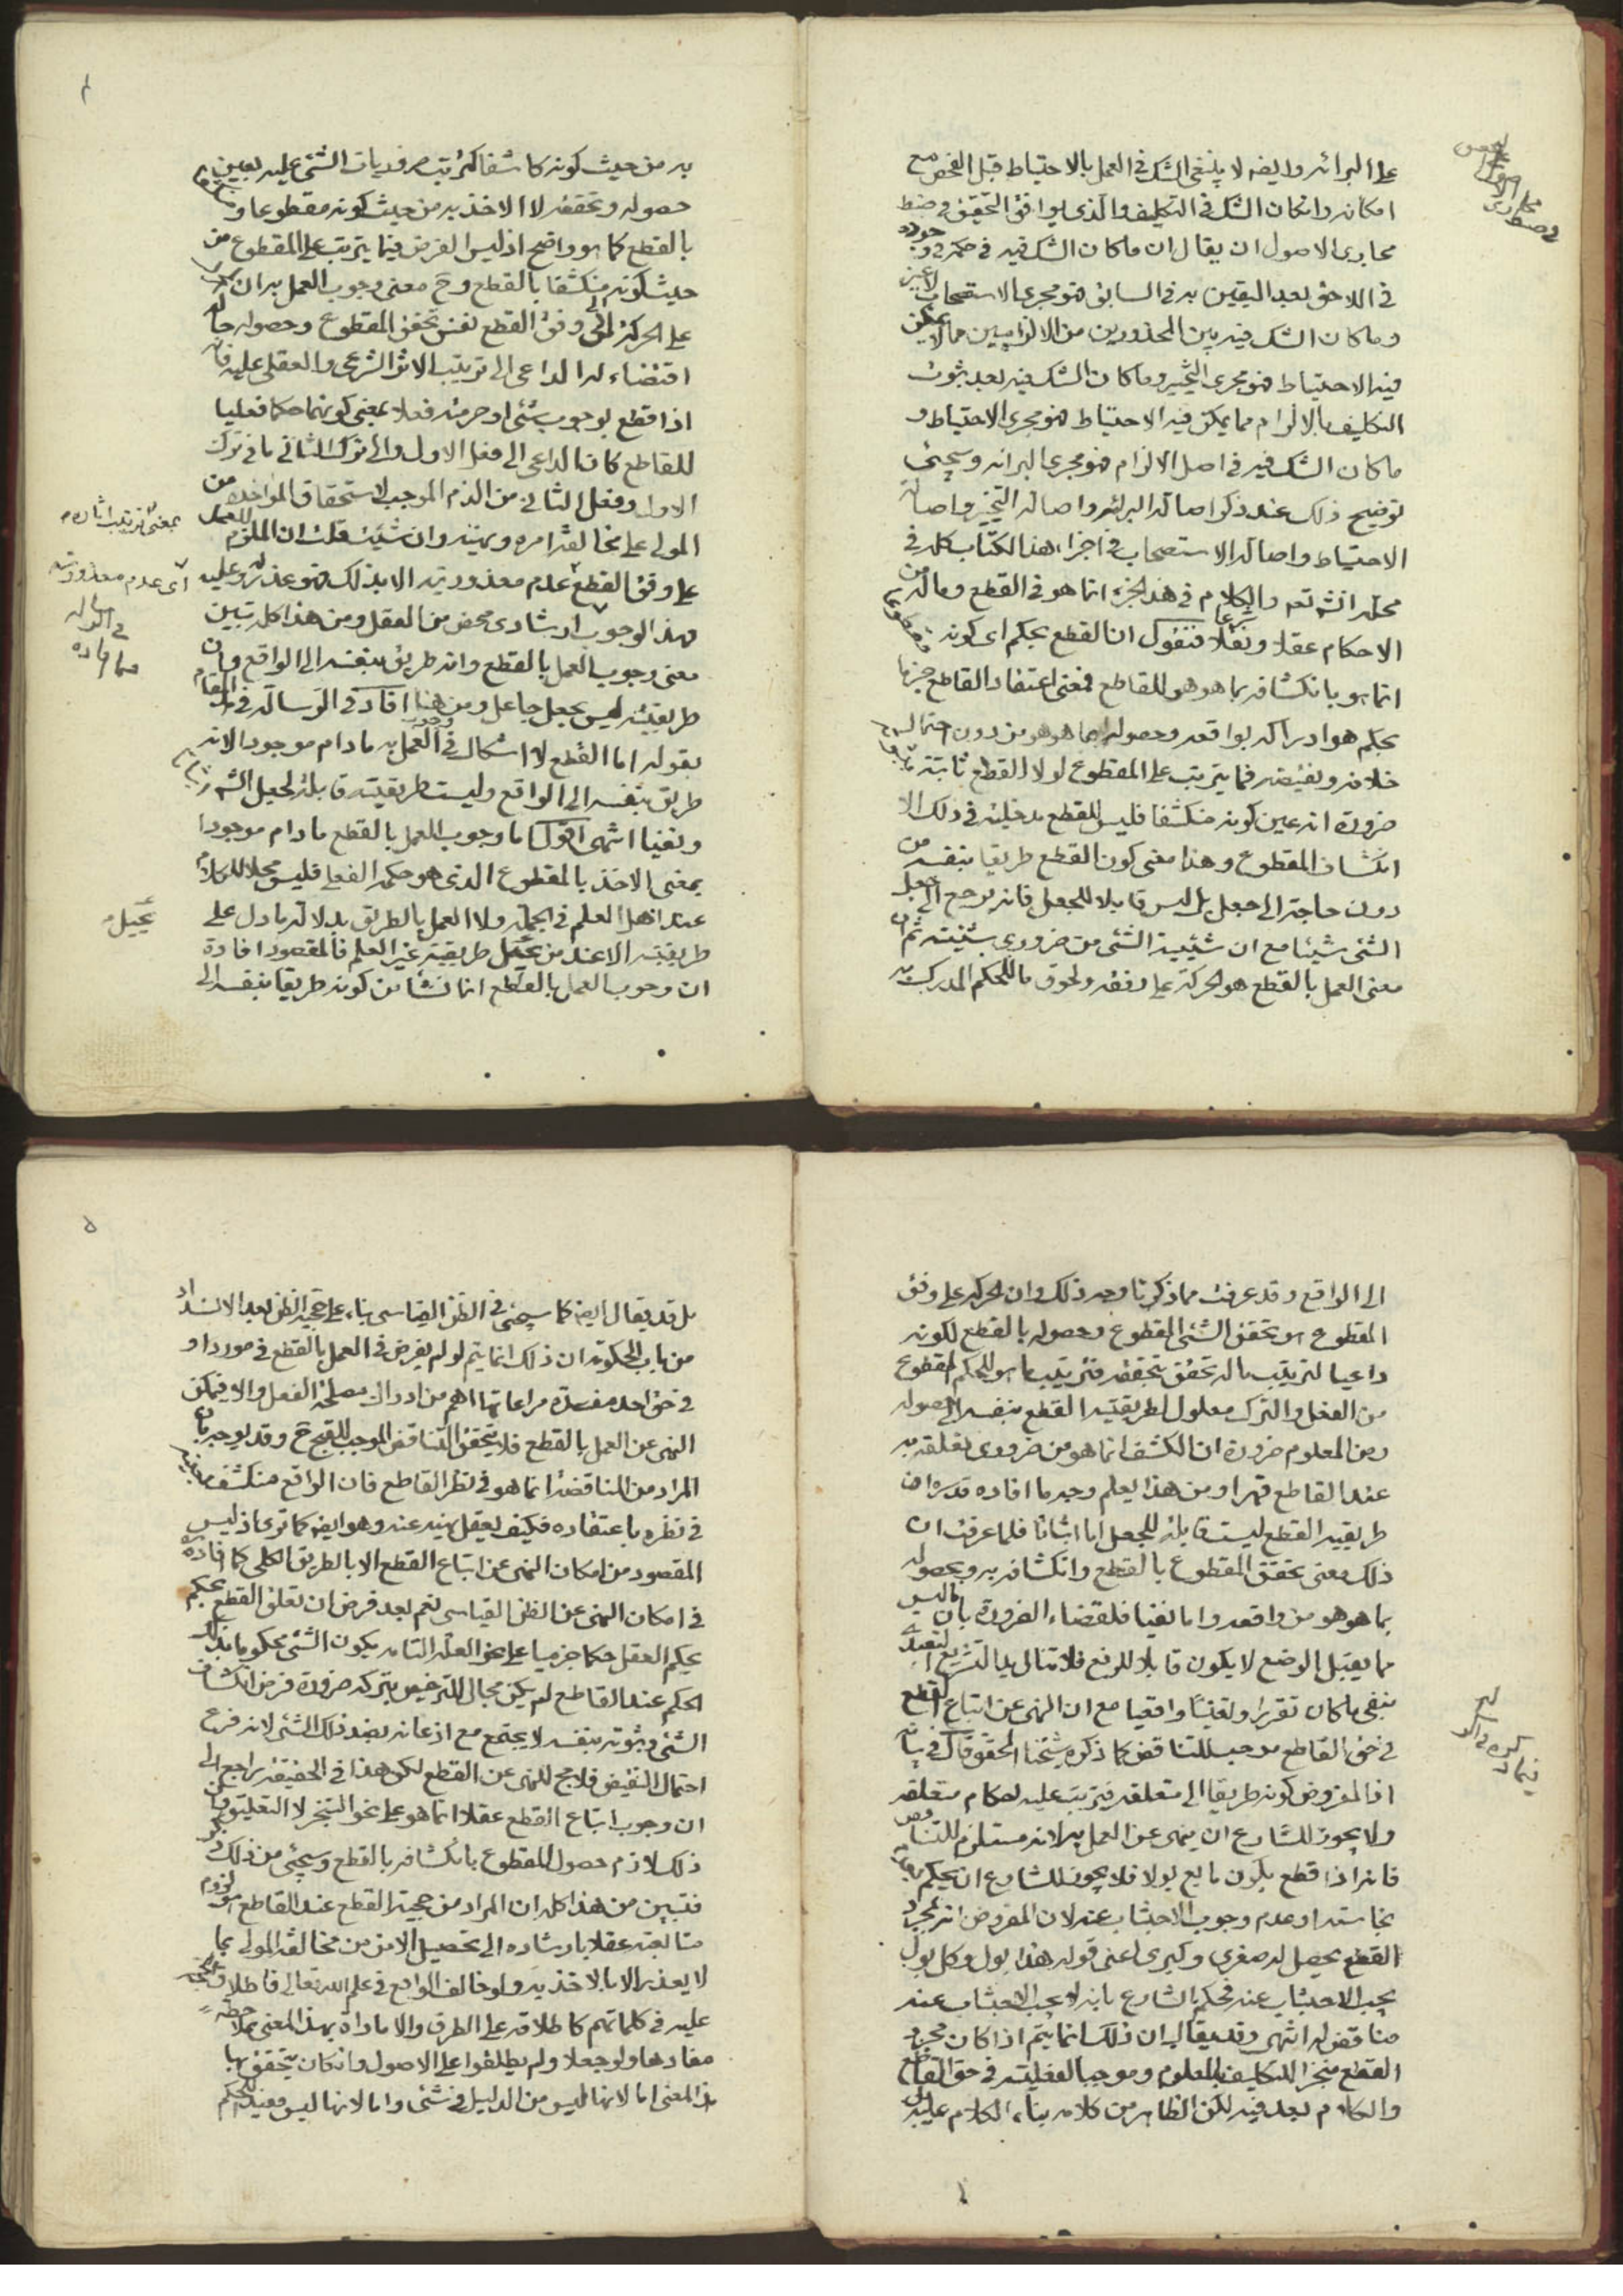 على البرائه وايضه لا ينبغى الشك فى العمل بالاحتياط قبل الفحص مع
امكانه وان كان الشك فى التكليف والذى يوافق التحقيق فى ضبط
مجارى الاصول ان يقال ان ما كان الشك فيه فى حكم
فى اللاحق بعد اليقين به فى السابق فهو مجرى الاستصحاب
وما كان الشك فيه بين المحذورين من الالزاميين مما لا يمكن
فيه الاحتياط فهو مجرى التخيير وما كان الشك فيه بعد ثبوت
التكليف بالالزام مما يمكن فيه الاحتياط فهو مجرى الاحتياط و
ما كان الشك فيه فى اصل الالزام فهو مجرى البرائه وسيجئى
توضيح ذلك عند ذكر اصالة البرائه واصالة التخيير واصالة
الاحتياط واصالة الاستصحاب فى اجزاء هذا الكتاب كل فى
محله انشه تعه والكلام فى هذا الجزء انما هو فى القطع وماله من
الاحكام عقلا ونقلا فنقول ان القطع بحكم اى كونه
انما هو بانكشافه بما هو هو للقاطع فمعنى اعتقاد القاطع جزما
بحكم هو ادراكه بواقعه وحصوله بما هو هو من دون احتمال
خلافه ونقيضه فما يترتب على المقطوع لولا القطع ثابتة
ضرورة انه عين كونه منكشفا فليس للقطع مدخلية فى ذلك الا
انكشاف المقطوع وهذا معنى كون القطع طريقا بنفسه من
دون حاجة الى جعل بل ليس قابلا للجعل فانه يرجع الى جعل
الشئى شيئا مع ان شيئية الشئى من ضرورى شيئيته ثم ان
معنى العمل بالقطع هو الحركة على وفقه ولحوق ما للحكم المدرك به
به من حيث كونه كاشفا كترتب ضروريات الشئى عليه بعين
حصوله وتحققه لا الاخذ به من حيث كونه مقطوعا و
بالقطع كما هو واضح اذ ليس الغرض فيما يترتب على المقطوع من
حيث كونه منكشفا بالقطع وح معنى وجوب العمل به ان
على الحركة الى وفق القطع نفس تحقق المقطوع وحصوله حال
اقتضاءه الداعى الى ترتيب الاثر الشرعى والعقلى عليه فانه
اذا قطع بوجوب شئى او حرمته فعلا بمعنى كونهما حكما فعليا
للقاطع كان الداعى الى فعل الاول والى ترك الثانى ما فى ترك
الاول وفعل الثانى من الذم الموجب لاستحقاق المواخذه من
المولى على مخالفة امره ونهيه وان شئت قلت ان الملزم للعمل
على وفق القطع عدم معذوريته الا بذلك فهو عذر له وعليه
فهذا الوجوب ارشادى محض من العقل ومن هذا كله تبين
معنى وجوب العمل بالقطع وانه طريق بنفسه الى الواقع وان
طريقيته ليس بجعل جاعل ومن هنا افاد فى الرسالة فى المقام
بقوله اما القطع لا اشكال فى وجوب العمل به ما دام موجودا لانه
طريق بنفسه الى الواقع وليست طريقيته قابلة لجعل الشه
ونفيا انتهى اقول اما وجوب العمل بالقطع ما دام موجودا
بمعنى الاخذ بالمقطوع الذى هو حكمه الفعلى فليس محلا للكلام
عند اهل العلم فى الجملة ولا العمل بالطريق بدلالة ما دل على
طريقيته الا عند من يحيل طريقية غير العلم فالمقصود افادة
ان وجوب العمل بالقطع انما نشا من كونه طريقا بنفسه الى
بمعنى ترتيب اثاره
اى عدم معذوريته
يحيل
الى الواقع وقد عرفت مما ذكرنا وجه ذلك وان الحركة على وفق
المقطوع هو تحقق الشئى المقطوع وحصوله بالقطع لكونه
داعيا لترتيب ما له تحقق بتحققه فترتيب ما هو للحكم المقطوع
من الفعل والترك معلول لطريقية القطع بنفسه الى حصوله
ومن المعلوم ضرورة ان الكشف انما هو من ضرورى تعلقه به
عند القاطع قهرا ومن هذا يعلم وجه ما افاده قدسره ان
طريقية القطع ليست قابلة للجعل اما اثباتا فلما عرفت ان
ذلك معنى تحقق المقطوع بالقطع وانكشافه به وبحصوله
بما هو هو من واقعه واما نفيا فلقضاء الضرورة بان ما ليس
مما يقبل الوضع لا يكون قابلا للرفع فلا تنال يد التشريع
بنفى ما كان تقررا وتعينا واقعيا مع ان النهى عن اتباع القطع
فى حق القاطع موجب للتناقض كما ذكره شيخنا المحقق قال فى بيانه
اذا المفروض كونه طريقا الى متعلقه فيترتب عليه احكام متعلقه
ولا يجوز للشارع ان ينهى عن العمل به لانه مستلزم للتناقض
فانه اذا قطع بكون مايع بولا فلا يجوز للشارع ان يحكم بعدم
نجاسته او عدم وجوب الاجتناب عنه لان المفروض انه بمجرد
القطع يحصل له صغرى وكبرى اعنى قوله هذا بول وكل بول
يجب الاجتناب عنه فحكم الشارع بانه لا يجب الاجتناب عنه
مناقض له انتهى وقد يقال ان ذلك انما يتم اذا كان مجرد
القطع منجزا للتكليف المعلوم وموجبا لفعليته فى حق القاطع
والكلام بعد فيه لكن الظاهر من كلامه بناء الكلام عليه بل
بل قد يقال ايضه كما سيجئى فى الظن القياسى بناء على حجية الظن بعد الانسداد
من باب الحكومة ان ذلك انما يتم لو لم يفرض فى العمل بالقطع فى مورد او
فى حق احد مفسدة مراعاتها اهم من ادراك مصلحة الفعل والا فيمكن
النهى عن العمل بالقطع فلا يتحقق التناقض الموجب للقبح ح وقد يوجه بان
المراد من المناقضة انما هو فى نظر القاطع فان الواقع منكشف
فى نظره باعتقاده فكيف يعقل نهيه عنه وهو ايضه كما ترى اذ ليس
المقصود من امكان النهى عن اتباع القطع الا بالطريق الكلى كما افاده
فى امكان النهى عن الظن القياسى نعم بعد فرض ان تعلق القطع بحكم
يحكم العقل حكما جزميا على نحو العلة التامه بكون الشئى محكوما بذلك
الحكم عند القاطع لم يكن مجال للترخيص بتركه ضرورة فرض انكشاف
الشئى وثبوته بنفسه لا يجتمع مع اذعانه بضد ذلك الشئى لانه فرع
احتمال النقيض فلا مج للنهى عن القطع لكن هذا فى الحقيقة يراجع الى
ان وجوب اتباع القطع عقلا انما هو على نحو التنجز لا التعليق
ذلك لازم حصول المقطوع بانكشافه بالقطع وسيجئى من ذلك
فتبين من هذا كله ان المراد من حجية القطع عند القاطع هو لزوم
متابعته عقلا بارشاده الى تحصيل الامن من مخالفة المولى بما
لا يعذر الا بالاخذ به ولو خالف الواقع فى علم الله تعالى فاطلاق الحجة
عليه فى كلماتهم كاطلاقه على الطرق والامارات بهذا المعنى بملاحظة
مفادها ولو جعلا ولم يطلقوا على الاصول وان كان يتحقق بها
هذا المعنى اما لانها ليس من الدليل فى شئى واما لانها ليس مفيدة للحكم